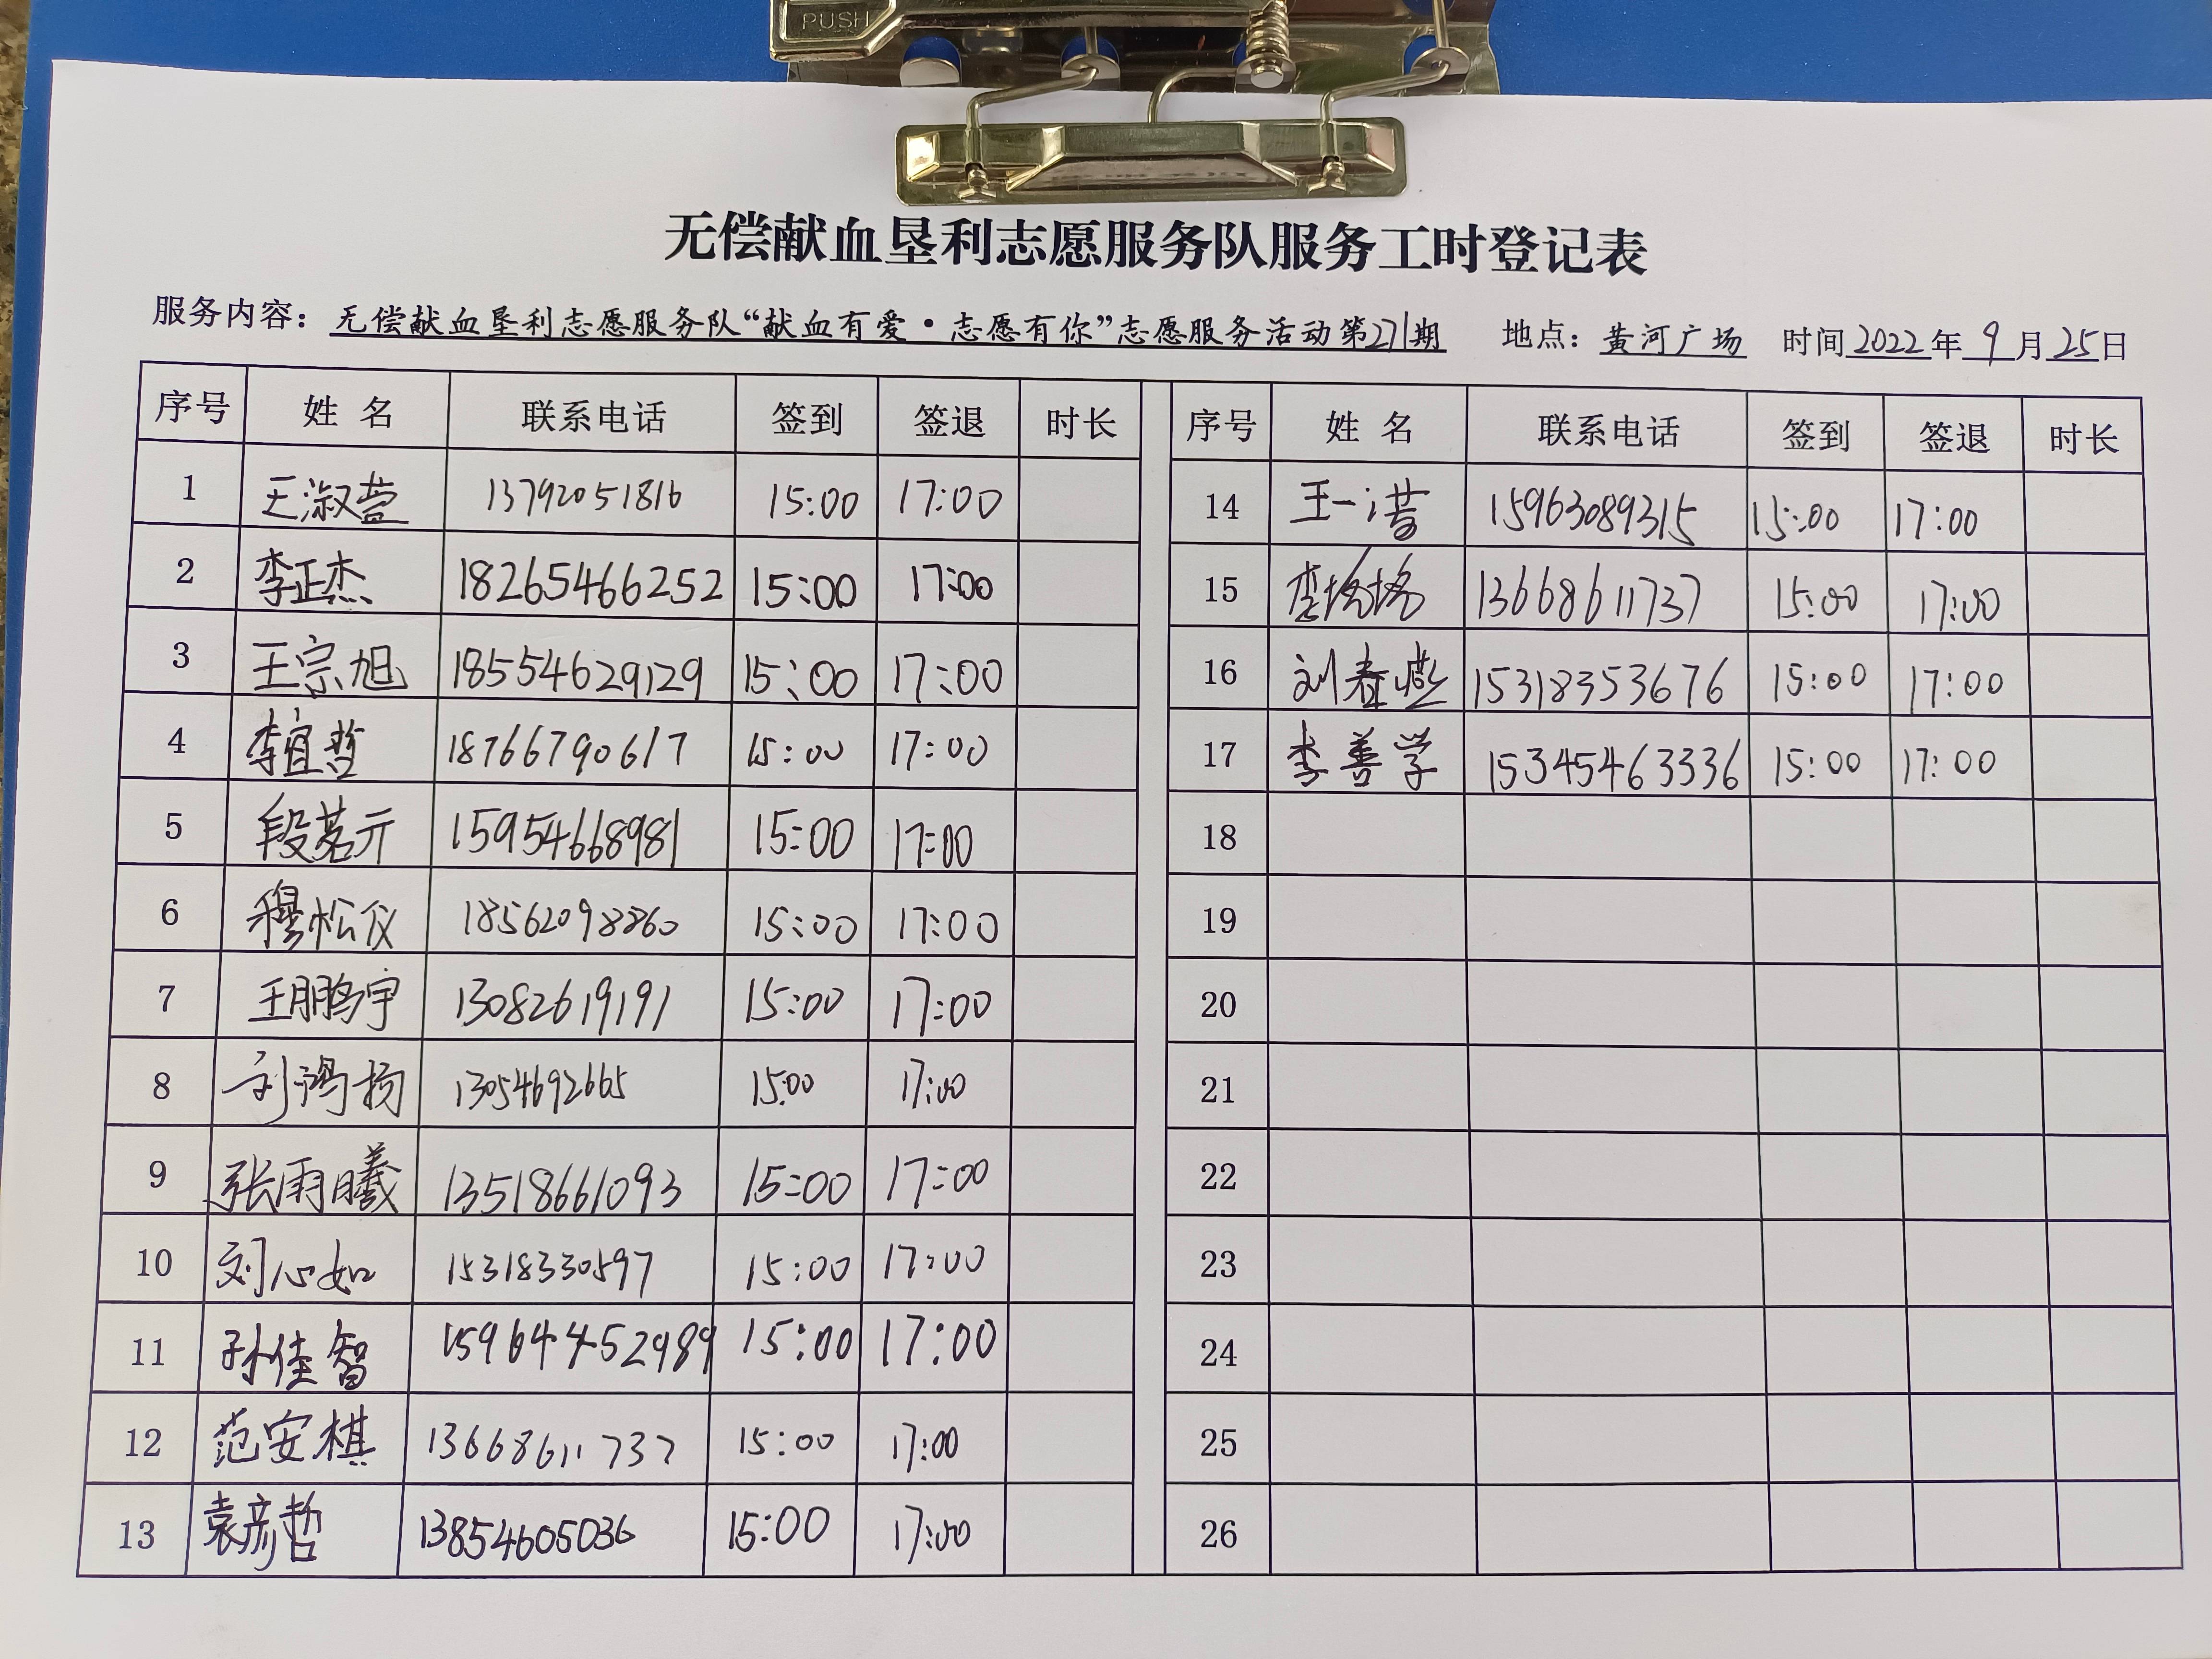 PUSH
无偿献血垦利志愿服务队服务工时登记表
服务内容：无偿献血垦利志愿服务队“献血有爱·志愿有你”志愿服务活动第271期 地点：黄河广场 时间2022年9月25日
序号 姓名 联系电话 签到 签退 时长 序号 姓名 联系电话 签到 签退 时长
1 王淑萱 13792051816 15:00 17:00 14 王一 15963089315 15:00 17:00
2 李正杰 18265466252 15:00 17:00 15 李 13668611737 15:00 17:00
3 王宗旭 18554629129 15:00 17:00 16 刘春燕 15318353676 15:00 17:00
4 李宜哲 18766790617 15:00 17:00 17 李善学 15345463336 15:00 17:00
5 段茗亓 15954668981 15:00 17:00 18
6 穆松仪 18562098860 15:00 17:00 19
7 王鹏宇 13082619191 15:00 17:00 20
8 刘鸿扬 13054692665 15:00 17:00 21
9 张雨曦 13518661093 15:00 17:00 22
10 刘心如 15318330597 15:00 17:00 23
11 孙佳智 15964452989 15:00 17:00 24
12 范安棋 13668611737 15:00 17:00 25
13 袁彦哲 13854605036 15:00 17:00 26